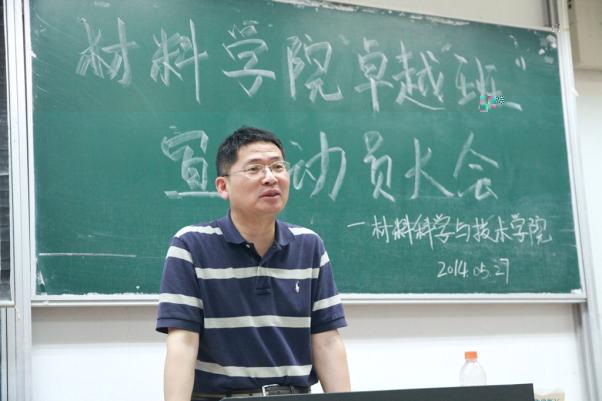 材料学院卓越班
宣 动员大会
—材料科学与技术学院
2014.05.27